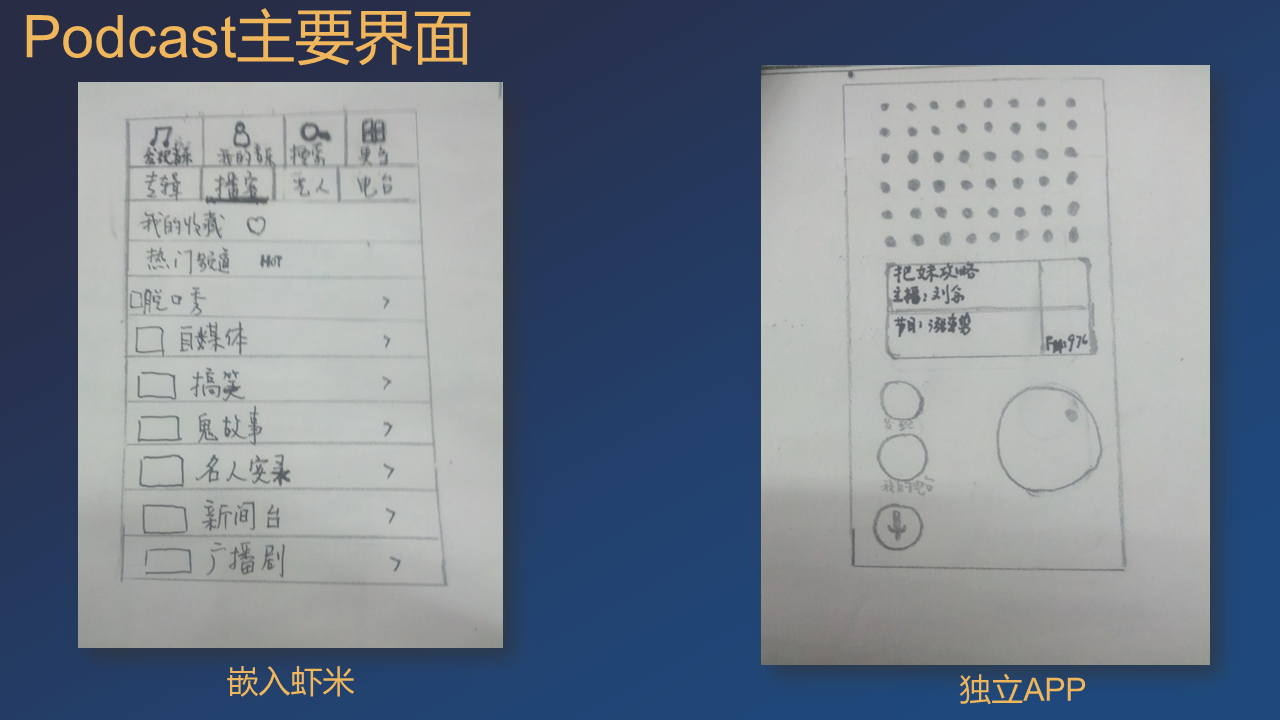 Podcast主要界面
发现音乐 我的音乐 搜索 更多
专辑 播客 艺人 电台
我的收藏
热门频道 HOT
脱口秀
自媒体
搞笑
鬼故事
名人实录
新闻台
广播剧
嵌入虾米
把妹攻略
主播:刘
节目:
FM:976
发现
我的电台
独立APP